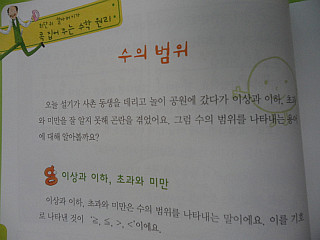 콕 집어 주는 수학 원리
수의 범위
오늘 설기가 사촌 동생을 데리고 놀이 공원에 갔다가 이상과 이하, 초과
와 미만을 잘 알지 못해 곤란을 겪었어요. 그럼 수의 범위를 나타내는 용어
에 대해 알아볼까요?
이상과 이하, 초과와 미만
이상과 이하, 초과와 미만은 수의 범위를 나타내는 말이에요. 이를 기호
로 나타낸 것이 '≧, ≦, >, <'이에요.